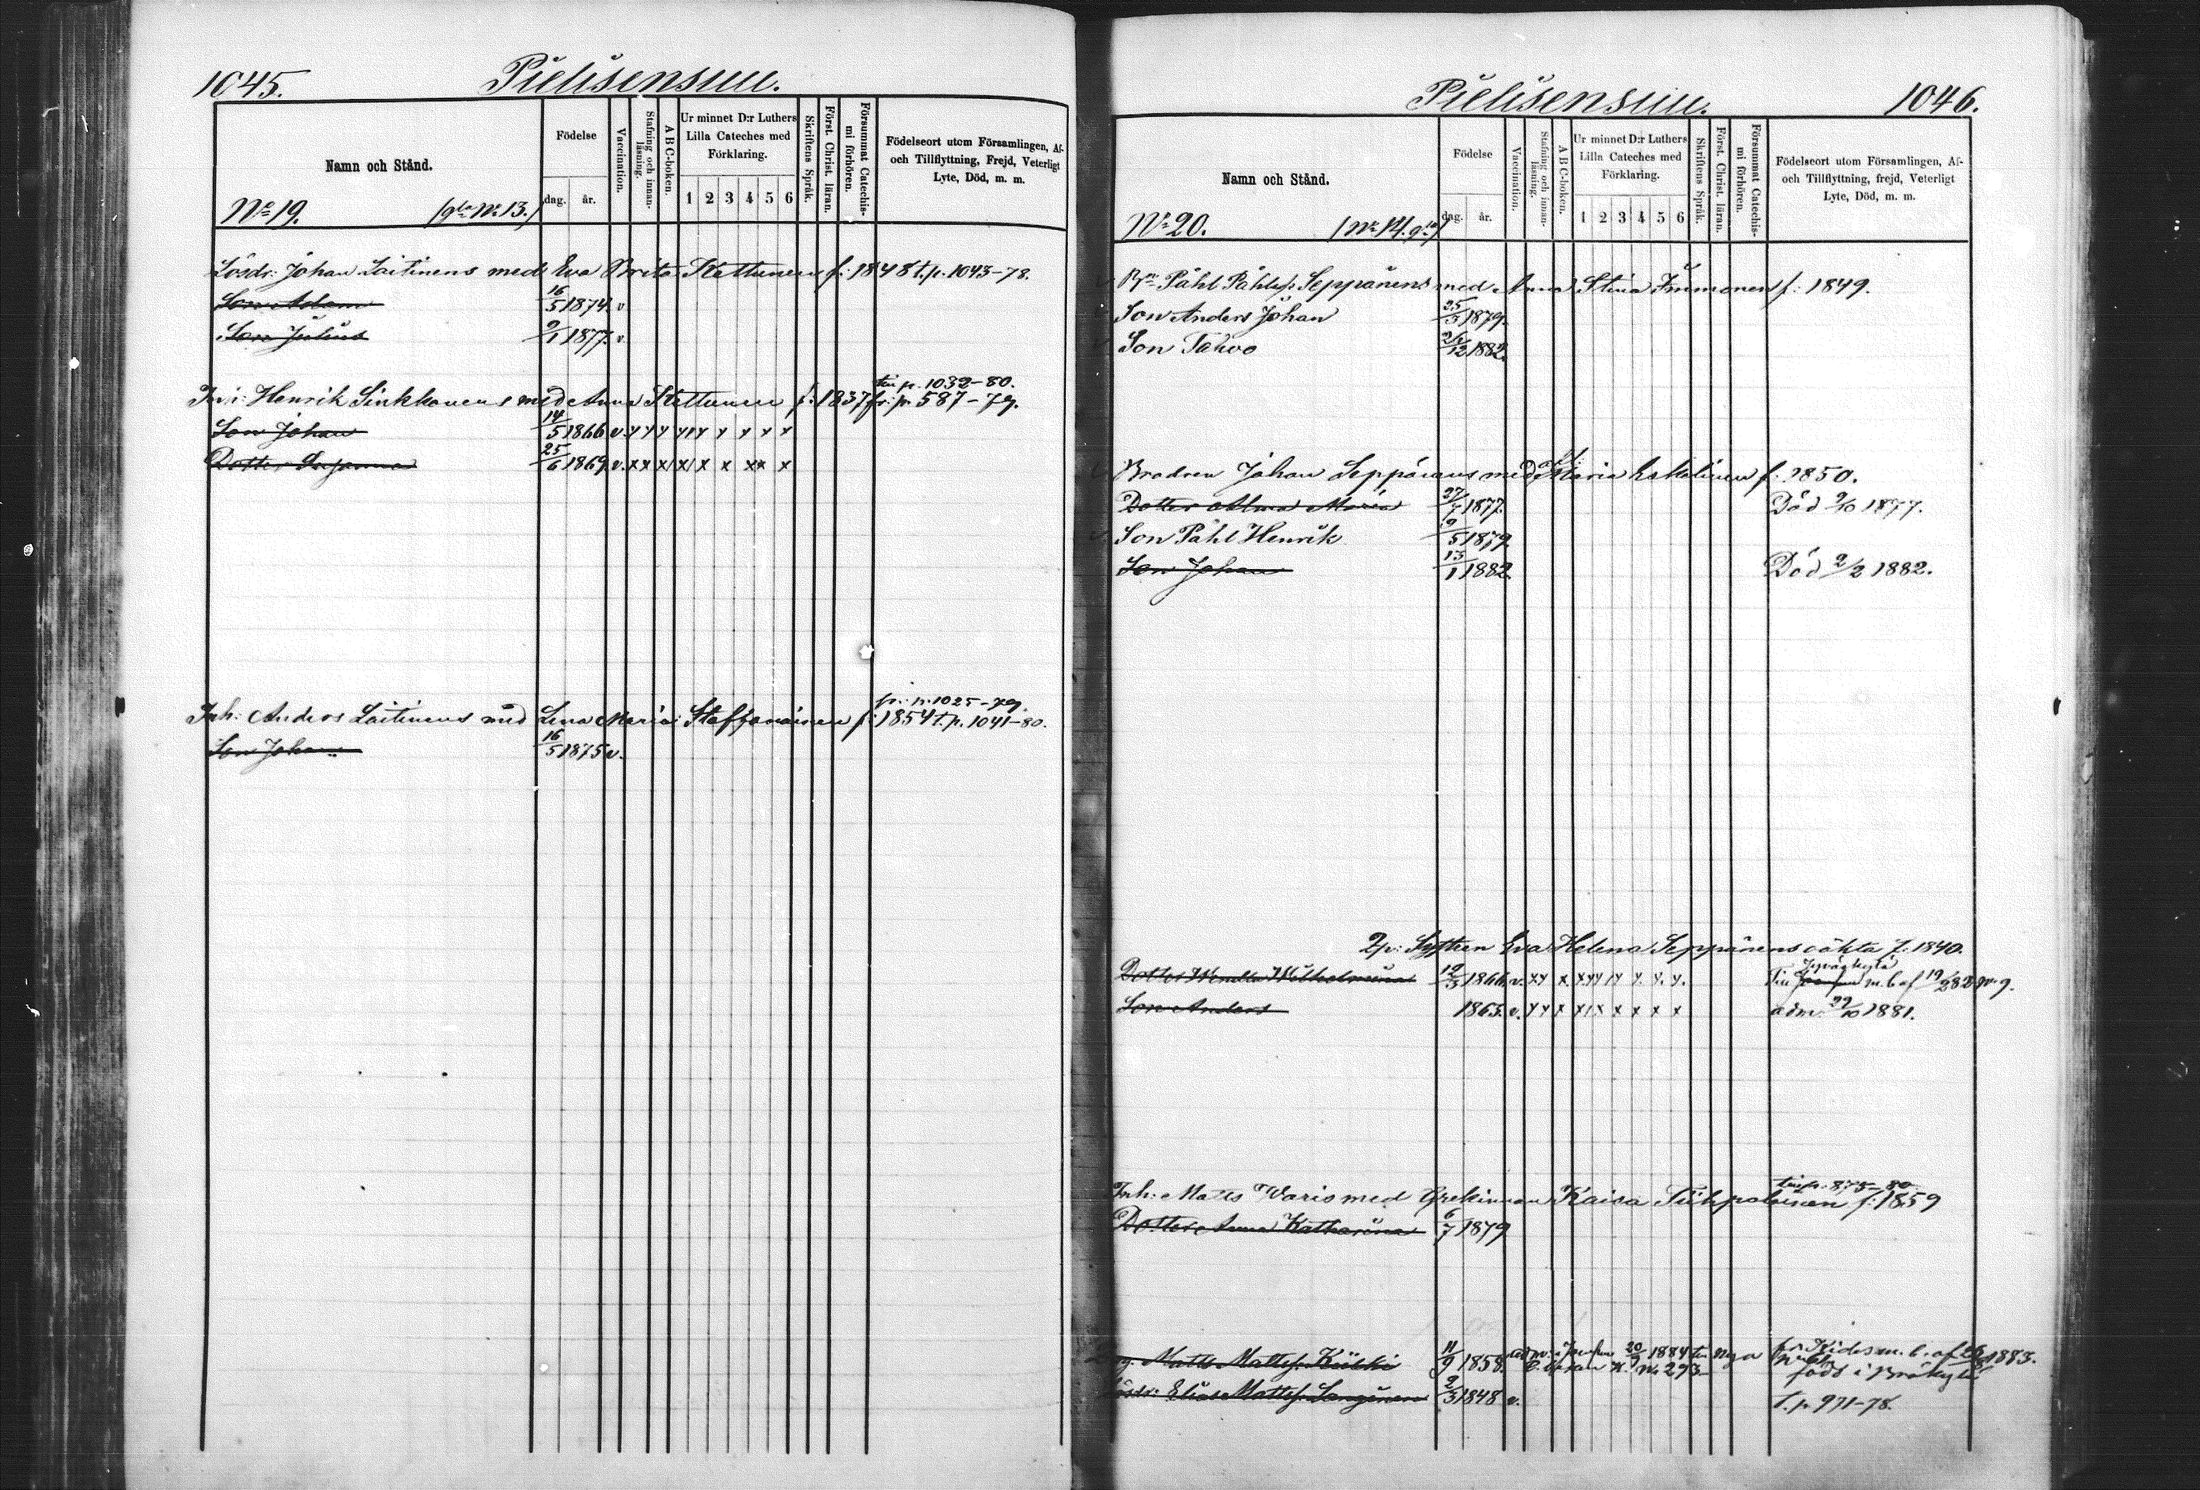 1045.
Pielisensuu.
Namn och Stånd.
Födelse
dag. år.
Vaccination.
Stafning och innanläsning.
A B C-boken.
Ur minnet D:r Luthers Lilla Cateches med Förklaring.
1 2 3 4 5 6
Skriftens Språk.
Först. Christ. läran.
Försummat Catechismi förhören.
Födelseort utom Församlingen, Af- och Tillflyttning, Frejd, Veterligt Lyte, Död, m. m.
No 19. (gla No 13.)
Lösdr: Johan Laitinens med Eva Brita Kettunen f: 1848 t. p. 1043-78.
Son Adam 16/5 1874. v
Son Julius 9/1 1877. v.
till p. 1032-80.
Henrik Sinkkonens med Anna Kettunen f: 1837 fr: p. 587-79.
Son Johan 14/5 1866 v. x x x x x x x x x x
Dotter Susanna 25/6 1869. v. x x x x x x x x x
fr: p. 1025-79.
Inh: Anders Laitinens med Lena Maria Staffanainen f: 1854 t. p. 1041-80.
Son Johan 16/5 1875 v.
Pielisensuu.
1046.
Namn och Stånd.
Födelse
dag. år.
Vaccination.
Stafning och innanläsning.
A B C-boken.
Ur minnet D:r Luthers Lilla Cateches med Förklaring.
1 2 3 4 5 6
Skriftens Språk.
Först. Christ. läran.
Försummat Catechismi förhören.
Födelseort utom Församlingen, Af- och Tillflyttning, frejd, Veterligt Lyte, Död, m. m.
No 20. (No 14. gla)
Påhl Påhlss. Seppänens med Anna Stina Immonen f: 1849.
Son Anders Johan 25/3 1879.
Son Tahvo 26/12 1882.
Brodren Johan Seppänens med Maria Eskelinen f: 1850.
Dotter Alma Maria 27/7 1877. Död 9/10 1877.
Son Påhl Henrik 9/5 1879.
Son Johan 13/1 1882. Död 2/2 1882.
Systren Eva Helena Seppänens oäkta f: 1840.
Dotter Wendla Wilhelmina 12/3 1866. v. x x x x x x x x x x. m. b. af 19/2 82
Son Anders 1863. v. x x x x x x x x x adm. 22/10 1881.
till p. 878-80
Inh: Matts Waris med Grekinnan Kaisa Tiihpalainen f: 1859
Dotter Anna Katharina 6/7 1879
Matts Mattss. Kiiski 11/9 1858. 20/9 1884 No 293 fr: Kides m. b. af 1883.
född i Bräkylä
Lösdr: Elias Mattss. Langinen 2/3 1848 v. T. p. 971-78.